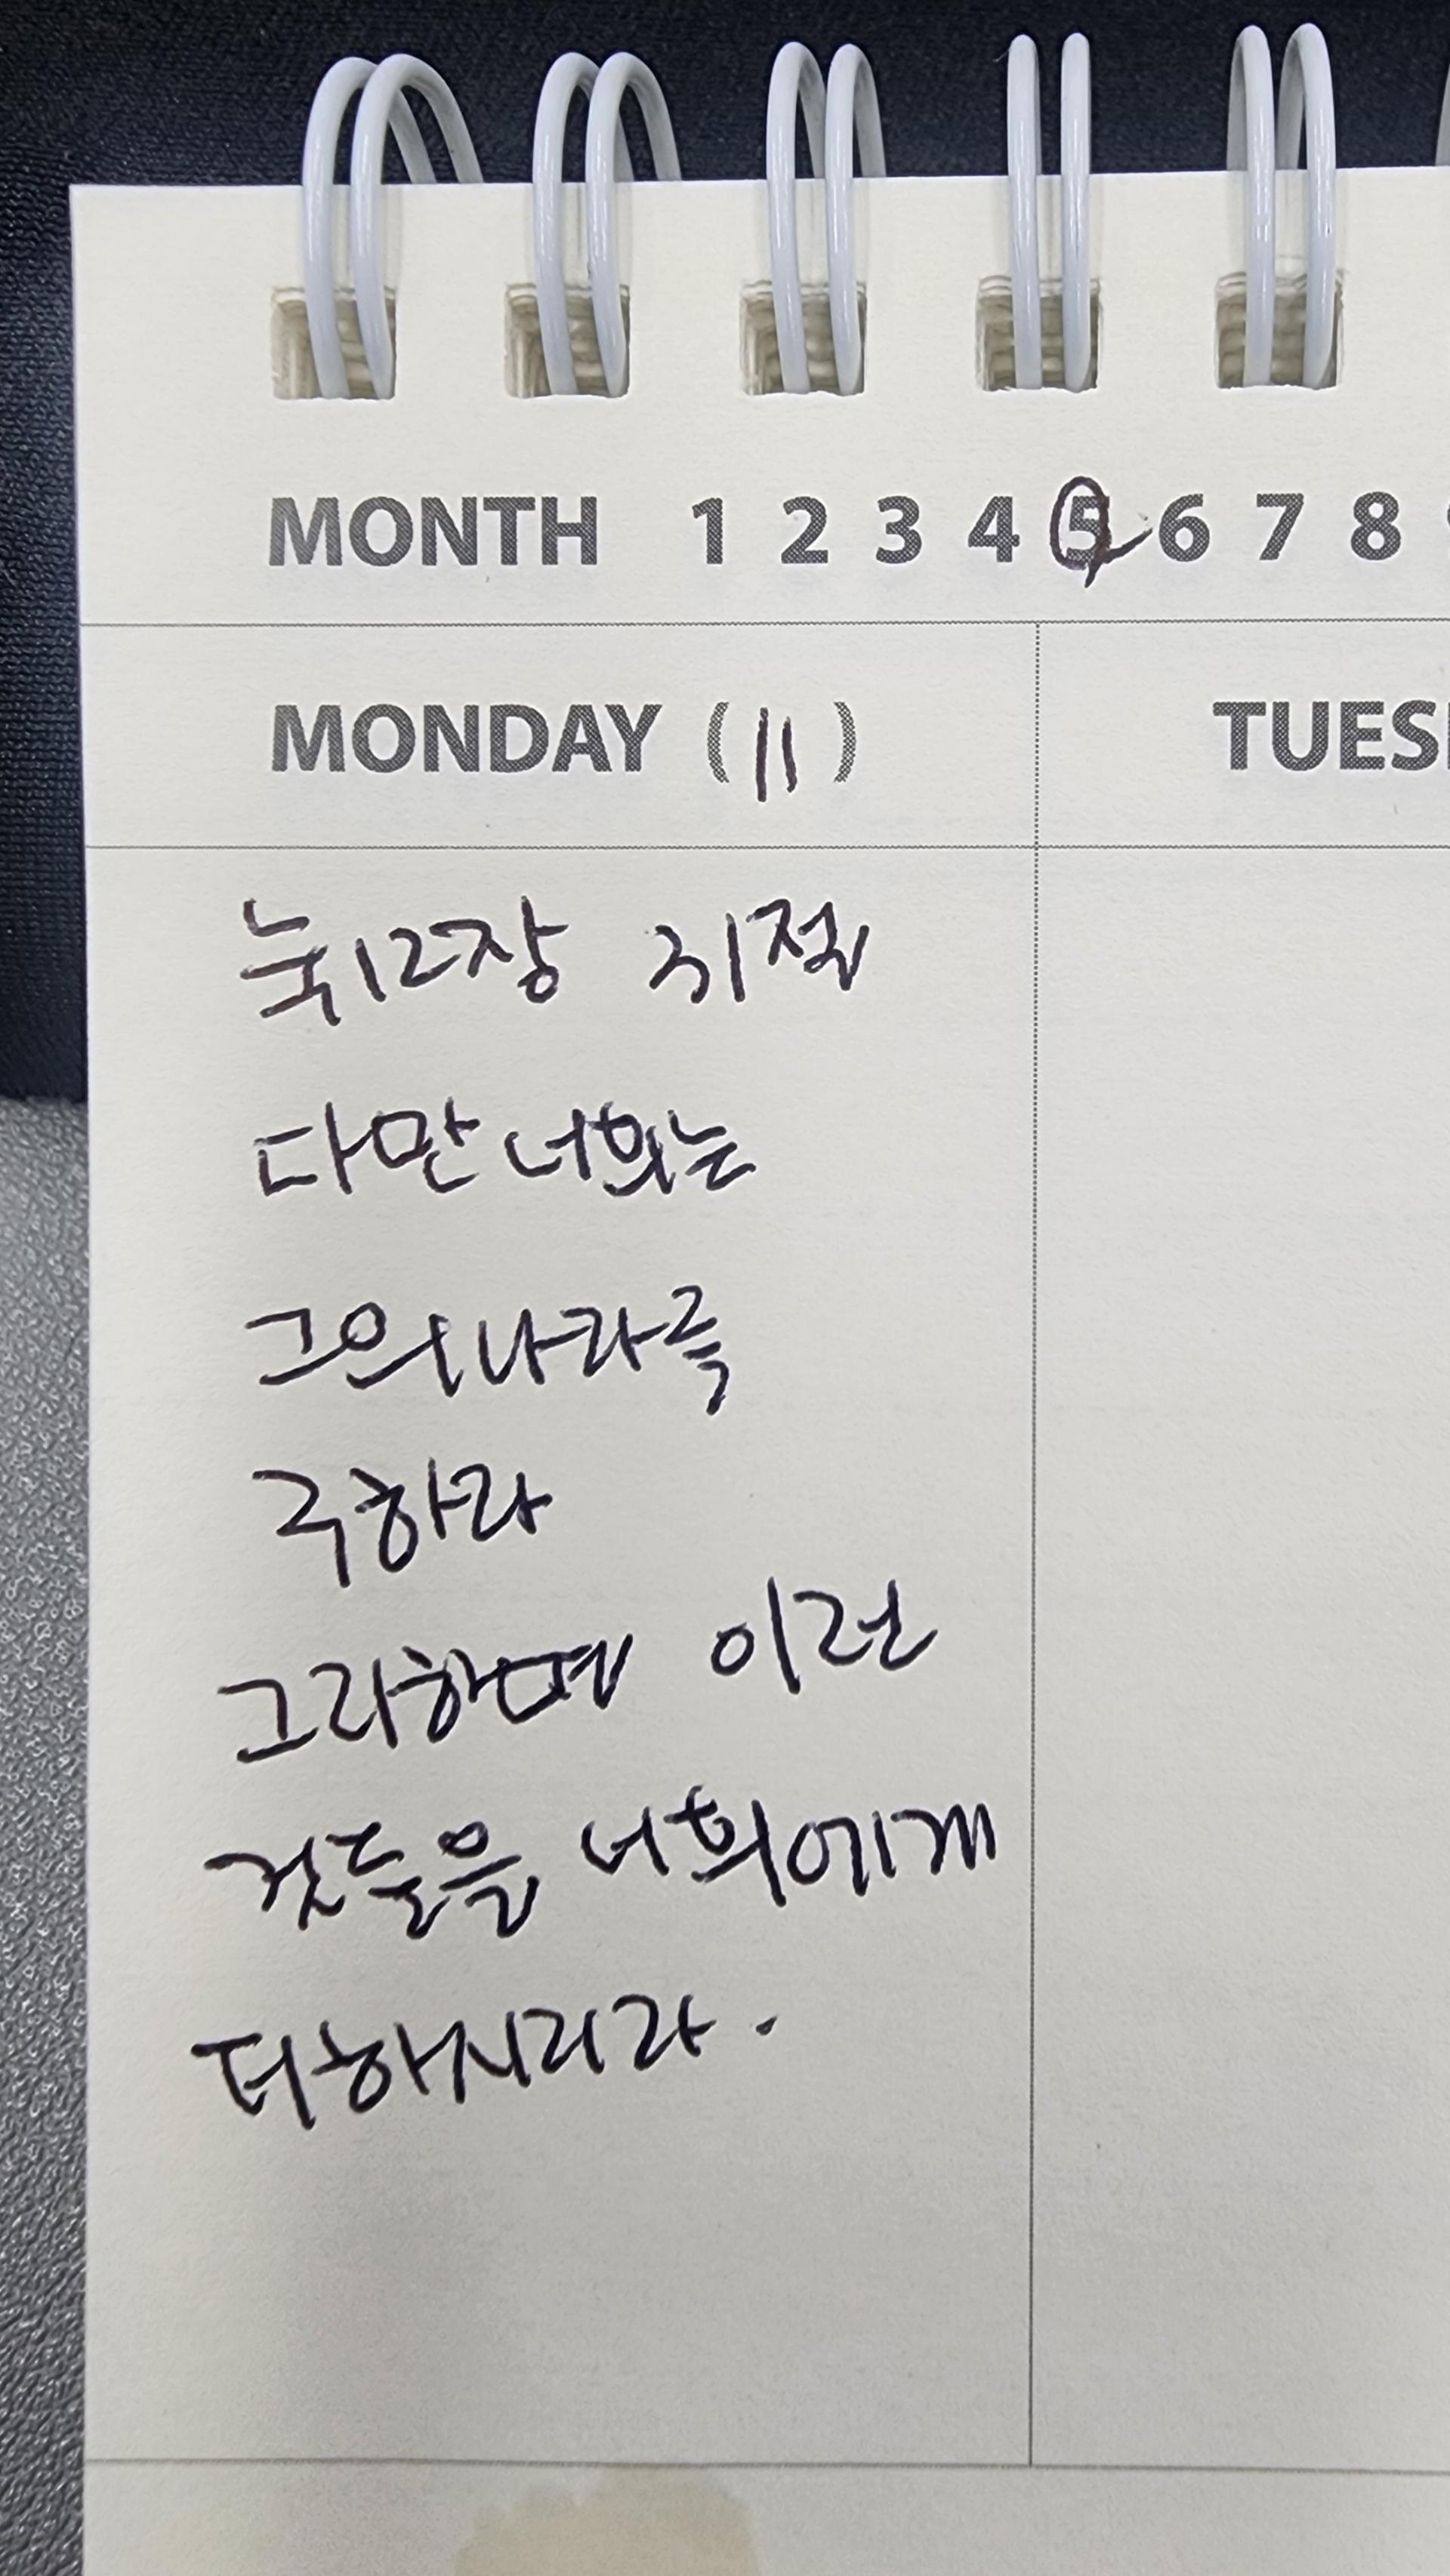 MONTH 1 2 3 4 5 6 7 8
MONDAY (11) TUES
눅12장 31절
다만 너희는
그의 나라를
구하라
그리하면 이런
것들을 너희에게
더하시리라.